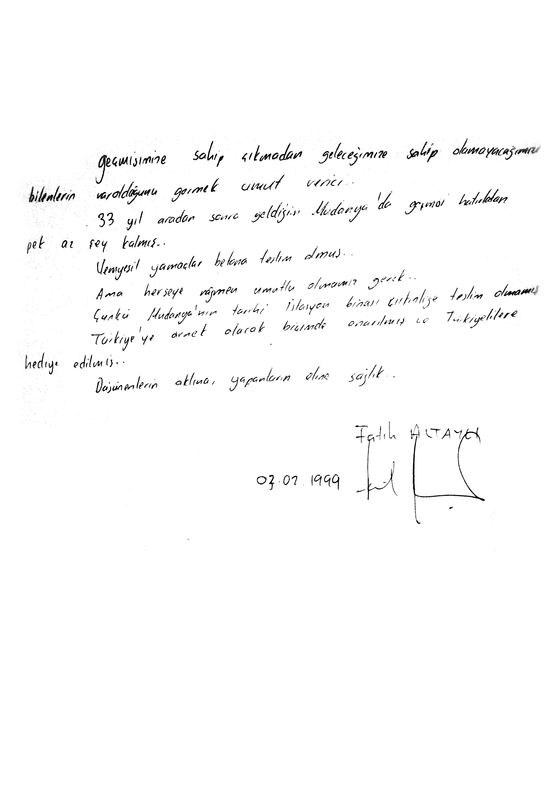 geçmişimize sahip çıkmadan geleceğimize sahip olamayacağımızı
bilenlerin varolduğunu görmek umut verici..
33 yıl aradan sonra geldiğim Mudanya'da geçmişi hatırlatan
pek az şey kalmış..
Yemyeşil yamaçlar betona teslim olmuş..
Ama herşeye rağmen umutlu olmamız gerek..
Çünkü Mudanya'nın tarihi İstasyon binası çirkinliğe teslim olmamış
Türkiye'ye örnek olacak biçimde onarılmış ve Türkiyelilere
hediye edilmiş..
Düşünenlerin aklına, yapanların eline sağlık..
Fatih ALTAYLI
03.02.1999